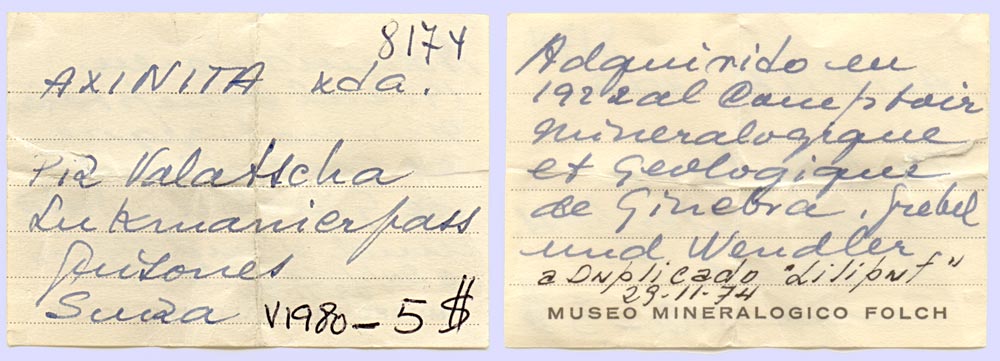 8174
AXINITA xda.
Piz Valatscha
Lukmanierpass
Grisones
Suiza
V1980 - 5 $
Adquirido en
1922 al Comptoir
Mineralogique
et Geologique
de Ginebra. Grebel
und Wendler
a Duplicado "Liliput"
29-11-74
MUSEO MINERALOGICO FOLCH